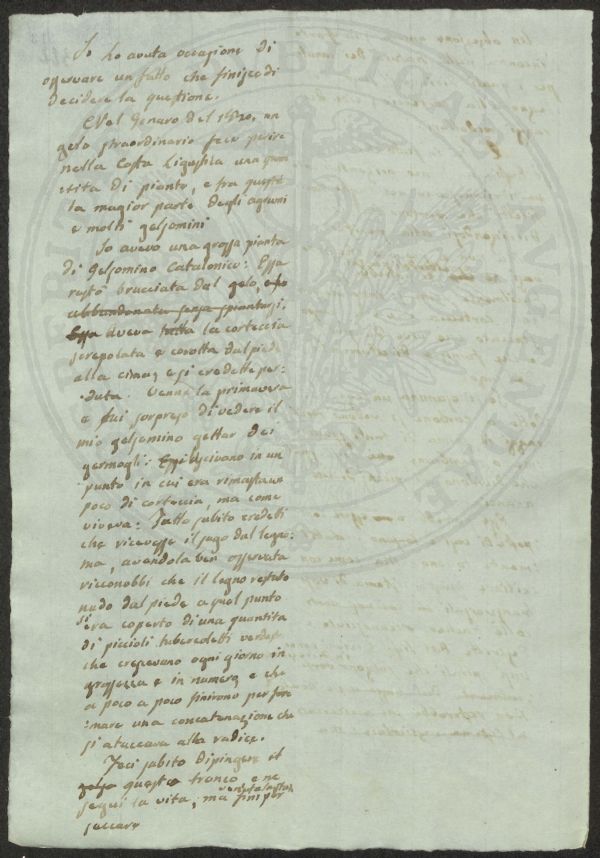 Io ho avuta occasione di
osservare un fatto che finisce di
decidere la questione.
Nel Genaro del 1820, un
gelo straordinario fece perire
nella Costa Ligustica una quan
tita di piante, e fra queste
la magior parte degli agrumi
e molti gelsomini
Io avevo una grossa pianta
di Gelsomino Catalonico: Essa
restò brucciata dal gelo,
abbandonata senza spiantarsi,
Essa aveva tutta la corteccia
screpolata e corotta dal piede
alla cima, e si credette per-
duta. Venne la primavera
e fui sorpreso di vedere il
mio gelsomino gettar dei
germogli: Essi uscivano in un
punto in cui era rimasta un
poco di corteccia, ma come
viveva? Tosto subito credetti
che ricevesse il sugo dal legno:
ma, avendola ben osservata
riconobbi che il legno restato
nudo dal piede a quel punto
si era coperto di una quantita
di piccioli tubercoletti
che crescevano ogni giorno in
grossezza e in numero, e che
a poco a poco finirono per for
mare una concatenazione che
si ataccava alla radice.
Feci subito dipingere il
questo tronco, e ne
seguì la vita, ma finì per
seccare